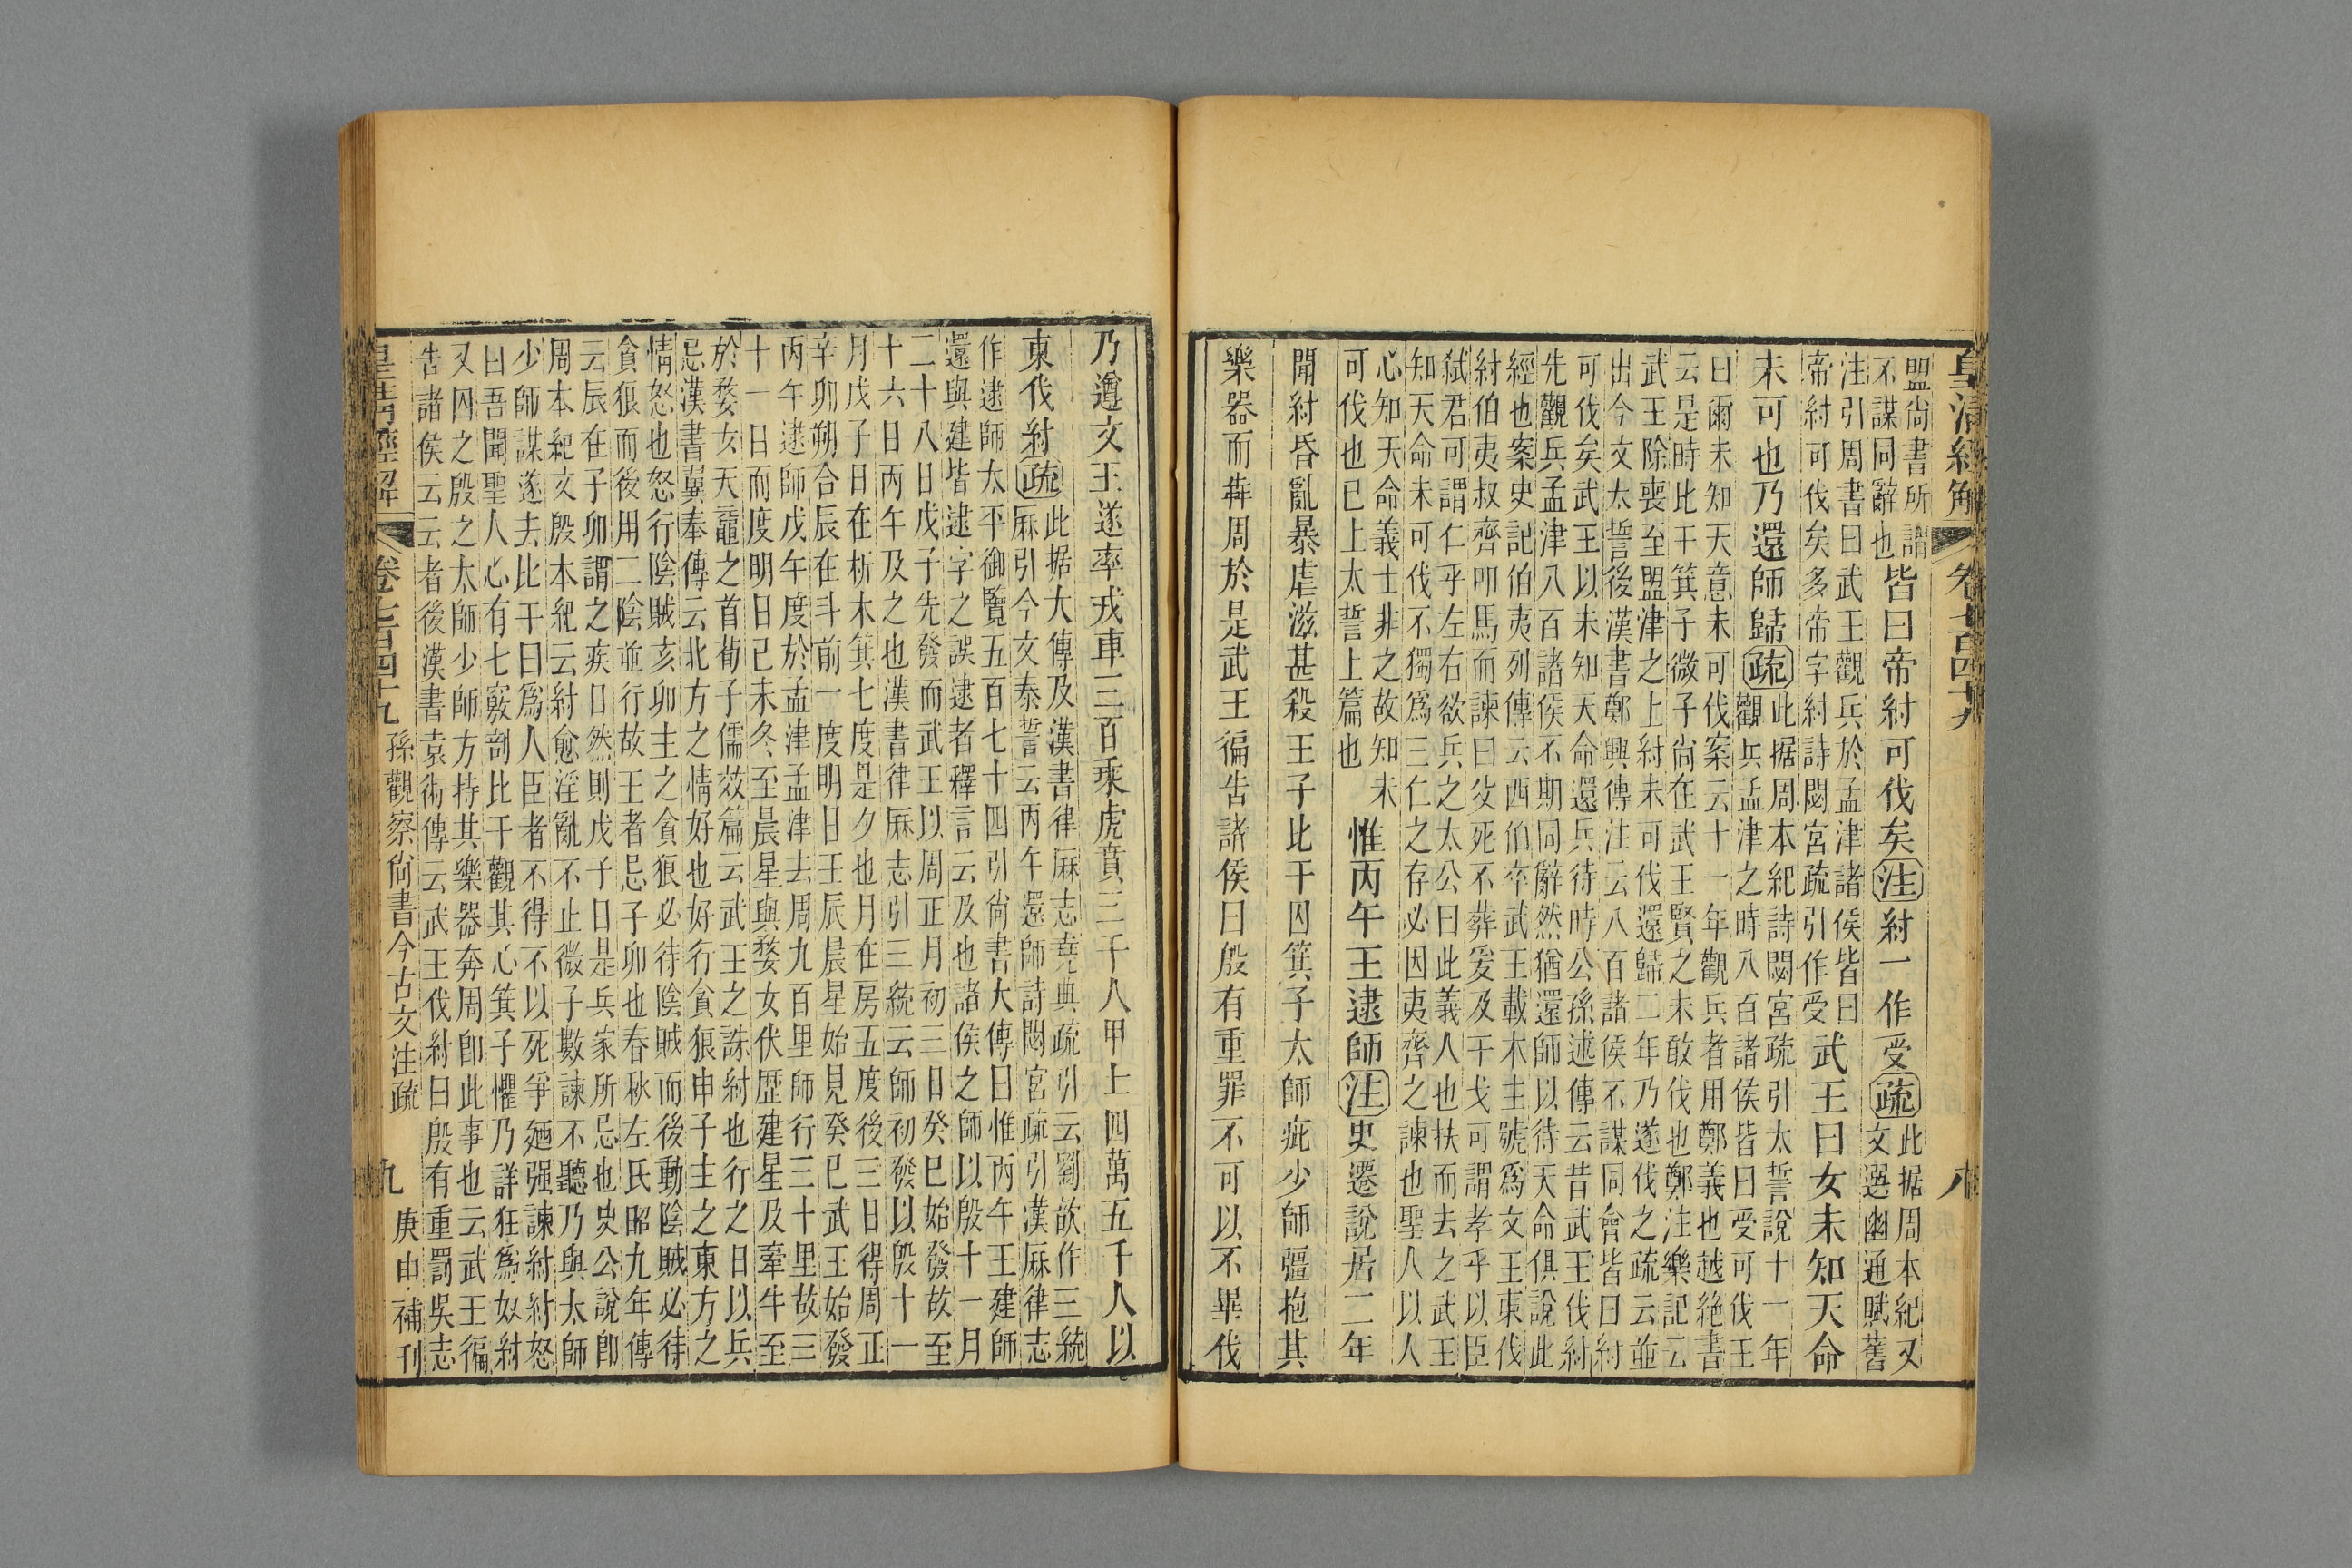 皇清經解 卷七百四十九 八
盟尚書所謂
不謀同辭也
皆曰帝紂可伐矣注紂一作受疏
此据周本紀又
文選幽通賦舊
注引周書曰武王觀兵於孟津諸侯皆曰
帝紂可伐矣多帝字紂詩閟宮疏引作受
武王曰女未知天命
未可也乃還師歸疏
此据周本紀詩閟宮疏引太誓說十一年
觀兵孟津之時八百諸侯皆曰受可伐王
曰爾未知天意未可伐案云十一年觀兵者用鄭義也越絕書
云是時比干箕子微子尚在武王賢之未敢伐也鄭注樂記云
武王除喪至盟津之上紂未可伐還歸二年乃遂伐之疏云並
出今文太誓後漢書鄭興傳注云八百諸侯不謀同會皆曰紂
可伐矣武王以未知天命還兵待時公孫述傳云昔武王伐紂
先觀兵孟津八百諸侯不期同辭然猶還師以待天命俱說此
經也案史記伯夷列傳云西伯卒武王載木主號爲文王東伐
紂伯夷叔齊叩馬而諫曰父死不葬爰及干戈可謂孝乎以臣
弑君可謂仁乎左右欲兵之太公曰此義人也扶而去之武王
知天命未可伐不獨爲三仁之存必因夷齊之諫也聖人以人
心知天命義士非之故知未
可伐也已上太誓上篇也
惟丙午王逮師注史遷說居二年
聞紂昏亂暴虐滋甚殺王子比干囚箕子太師疵少師彊抱其
樂器而犇周於是武王徧告諸侯曰殷有重罪不可以不畢伐
乃遵文王遂率戎車三百乘虎賁三千人甲士四萬五千人以
東伐紂疏
此据大傳及漢書律厤志堯典疏引云劉歆作三統
厤引今文泰誓云丙午還師詩閟宮疏引漢厤律志
作逮師太平御覽五百七十四引尚書大傳曰惟丙午王建師
還與建皆逮字之誤逮者釋言云及也諸侯之師以殷十一月
二十八日戊子先發而武王以周正月初三日癸巳始發故至
十六日丙午及之也漢書律厤志引三統云師初發以殷十一
月戊子日在析木箕七度是夕也月在房五度後三日得周正
辛卯朔合辰在斗前一度明日王辰晨星始見癸巳武王始發
丙午逮師戊午度於孟津孟津去周九百里師行三十里故三
十一日而度明日己未冬至晨星與婺女伏歷建星及牽牛至
於婺女天黿之首荀子儒效篇云武王之誅紂也行之日以兵
忌漢書翼奉傳云北方之情好也好行貪狼申子主之東方之
情怒也怒行陰賊亥卯主之貪狼必待陰賊而後動陰賊必待
貪狼而後用二陰並行故王者忌子卯也春秋左氏昭九年傳
云辰在子卯謂之疾日然則戊子日是兵家所忌也史公說即
周本紀文殷本紀云紂愈淫亂不止微子數諫不聽乃與大師
少師謀遂去比干曰爲人臣者不得不以死爭廼强諫紂紂怒
曰吾聞聖人心有七竅剖比干觀其心箕子懼乃詳狂爲奴紂
又囚之殷之太師少師方持其樂器奔周卽此事也云武王徧
告諸侯云云者後漢書袁術傳云武王伐紂曰殷有重罰吳志
皇清經解 卷七百四十九 孫觀察尚書今古文注疏 九 庚申補刊